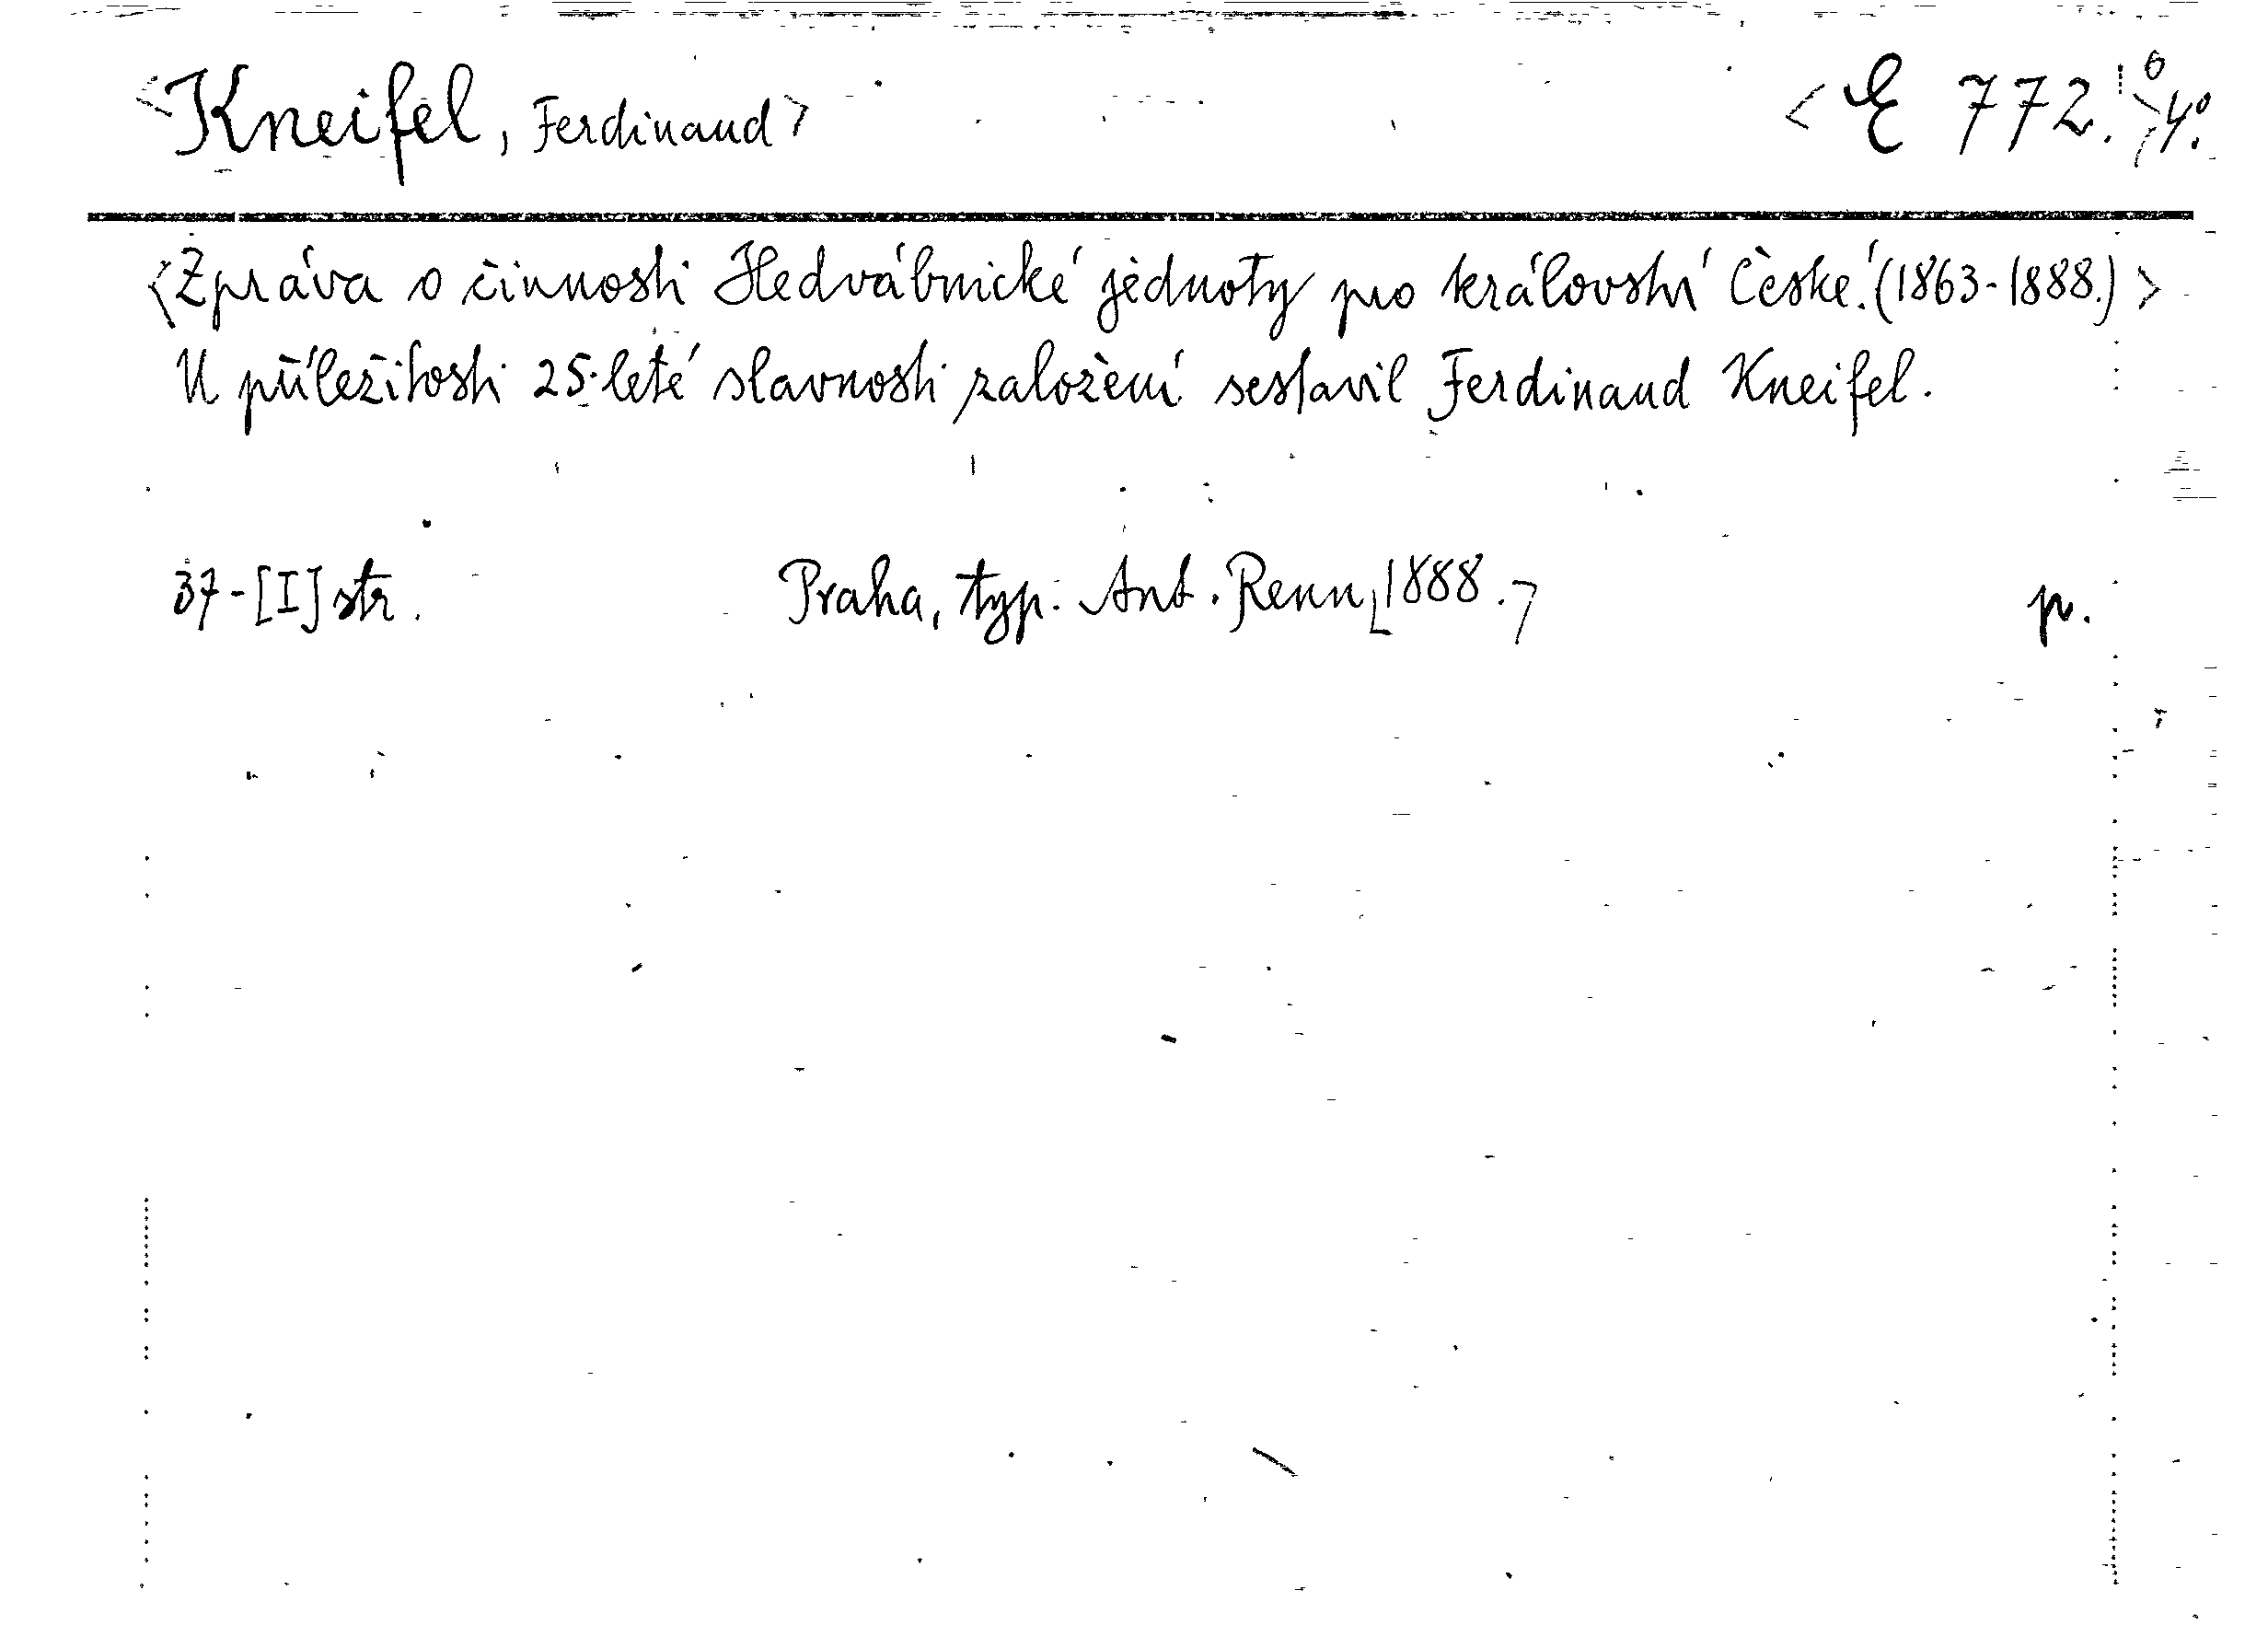 <Kneifel, Ferdinand> <E 772.> 4°.
<Zpráva o činnosti Hedvábnické jednoty pro království České. (1863-1888.)>
U příležitosti 25-leté slavnosti založení sestavil Ferdinand Kneifel.
37-[I] str. Praha, typ. Ant. Renn, 1888. p.